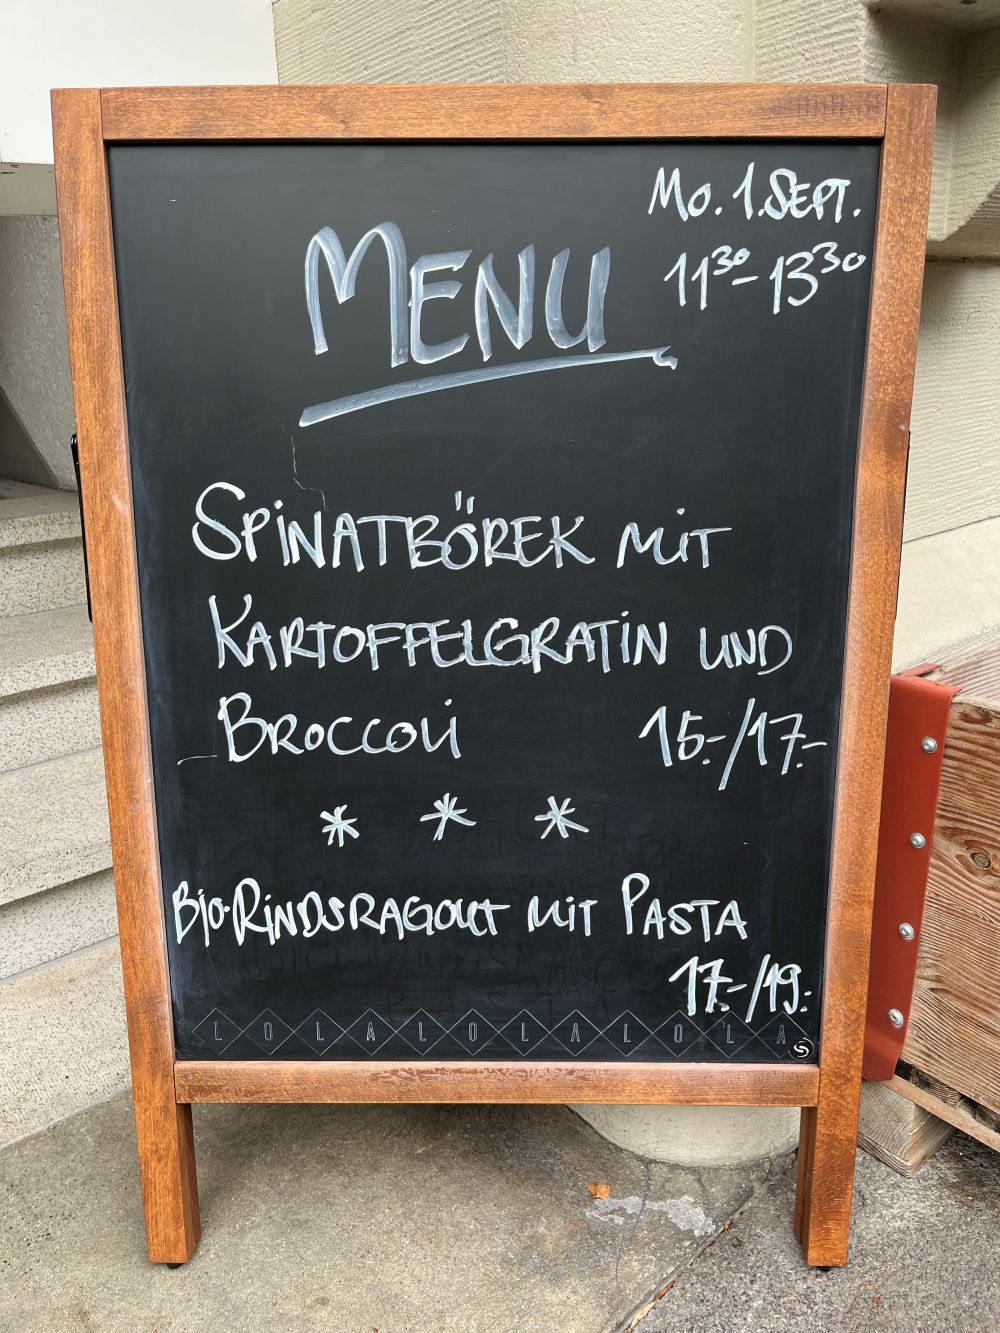 Mo. 1. SEPT.
11³⁰-13³⁰
MENU
SPINATBÖREK MIT
KARTOFFELGRATIN UND
BROCCOLI 15.-/17.-
* * *
BIO-RINDSRAGOUT MIT PASTA
17.-/19.-
LOLALOLALOLA